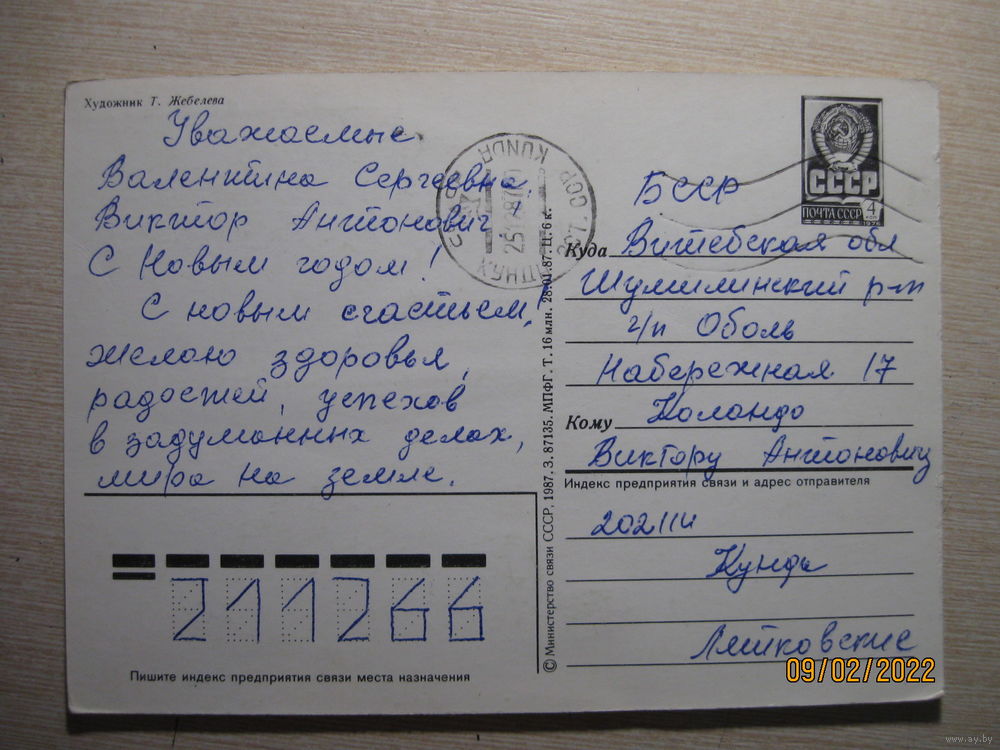 Художник Т. Жебелева
Уважаемые
Валентина Сергеевна,
Виктор Антонович
С Новым годом!
С новым счастьем,
желаю здоровья,
радостей, успехов
в задуманных делах,
мира на земле.
211266
Пишите индекс предприятия связи места назначения
© Министерство связи СССР, 1987. З. 87135. МПФГ. Т. 16 млн. 28.01.87. Ц. 6 к.
KUNDA
СССР
ПОЧТА СССР 4 КОП
1976
БССР
Куда Витебская обл
Шумилинский р-н
г/п Оболь
Набережная 17
Кому Коландо
Виктору Антоновичу
Индекс предприятия связи и адрес отправителя
202114
Кунда
Лятковские
09/02/2022
www.ay.by